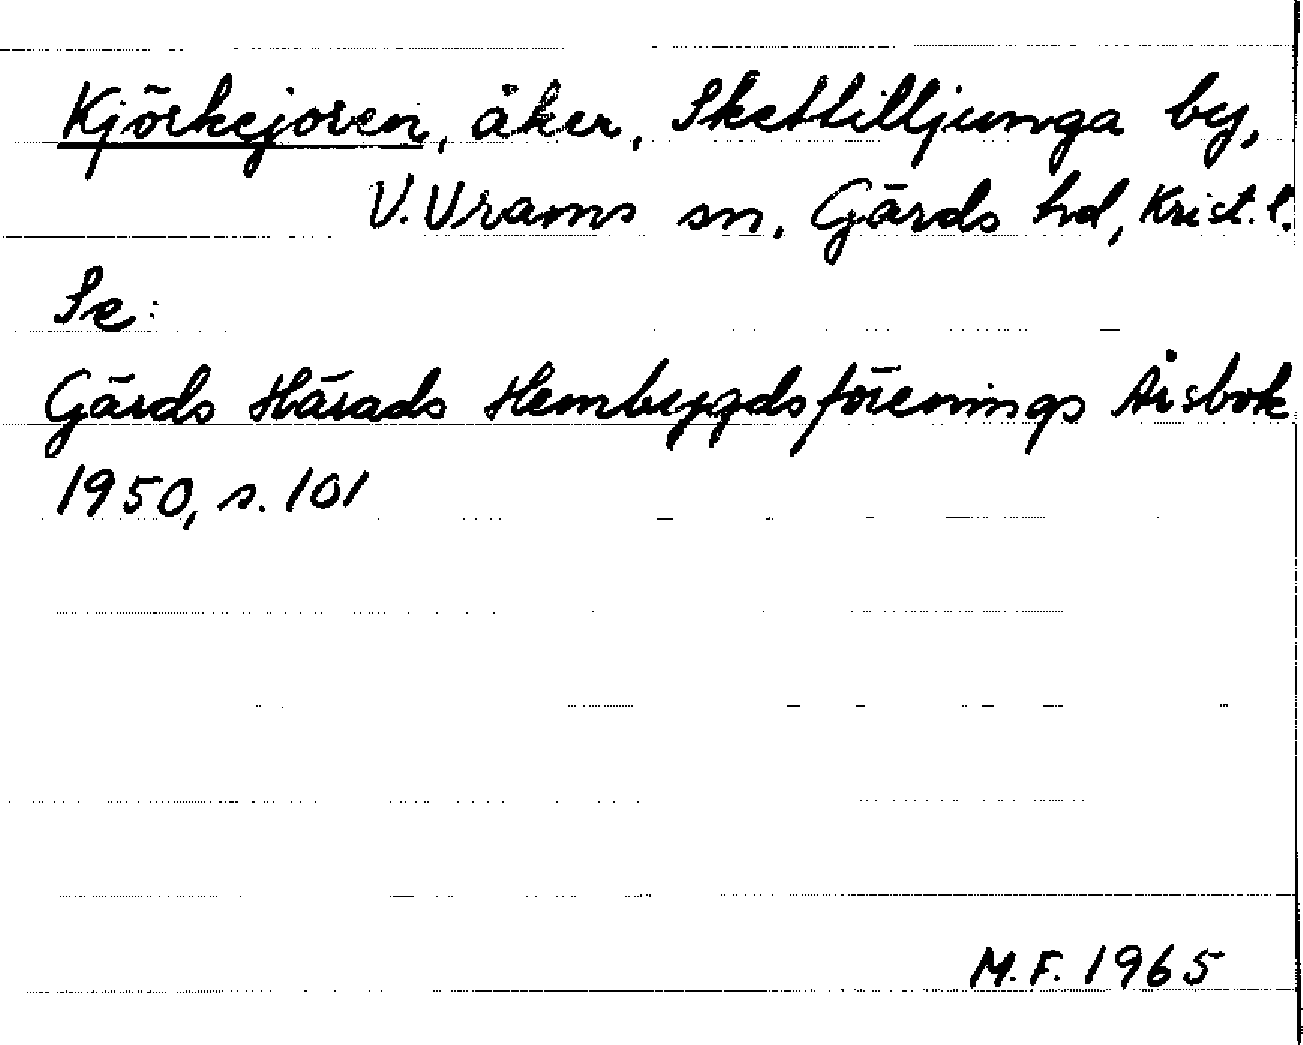 Kjörkejoren, åker, Skettilljunga by,
V. Vrams sn, Gärds hd, Krist. l.
Se:
Gärds Härads Hembygdsförenings Årsbok
1950, s. 101
M.F. 1965